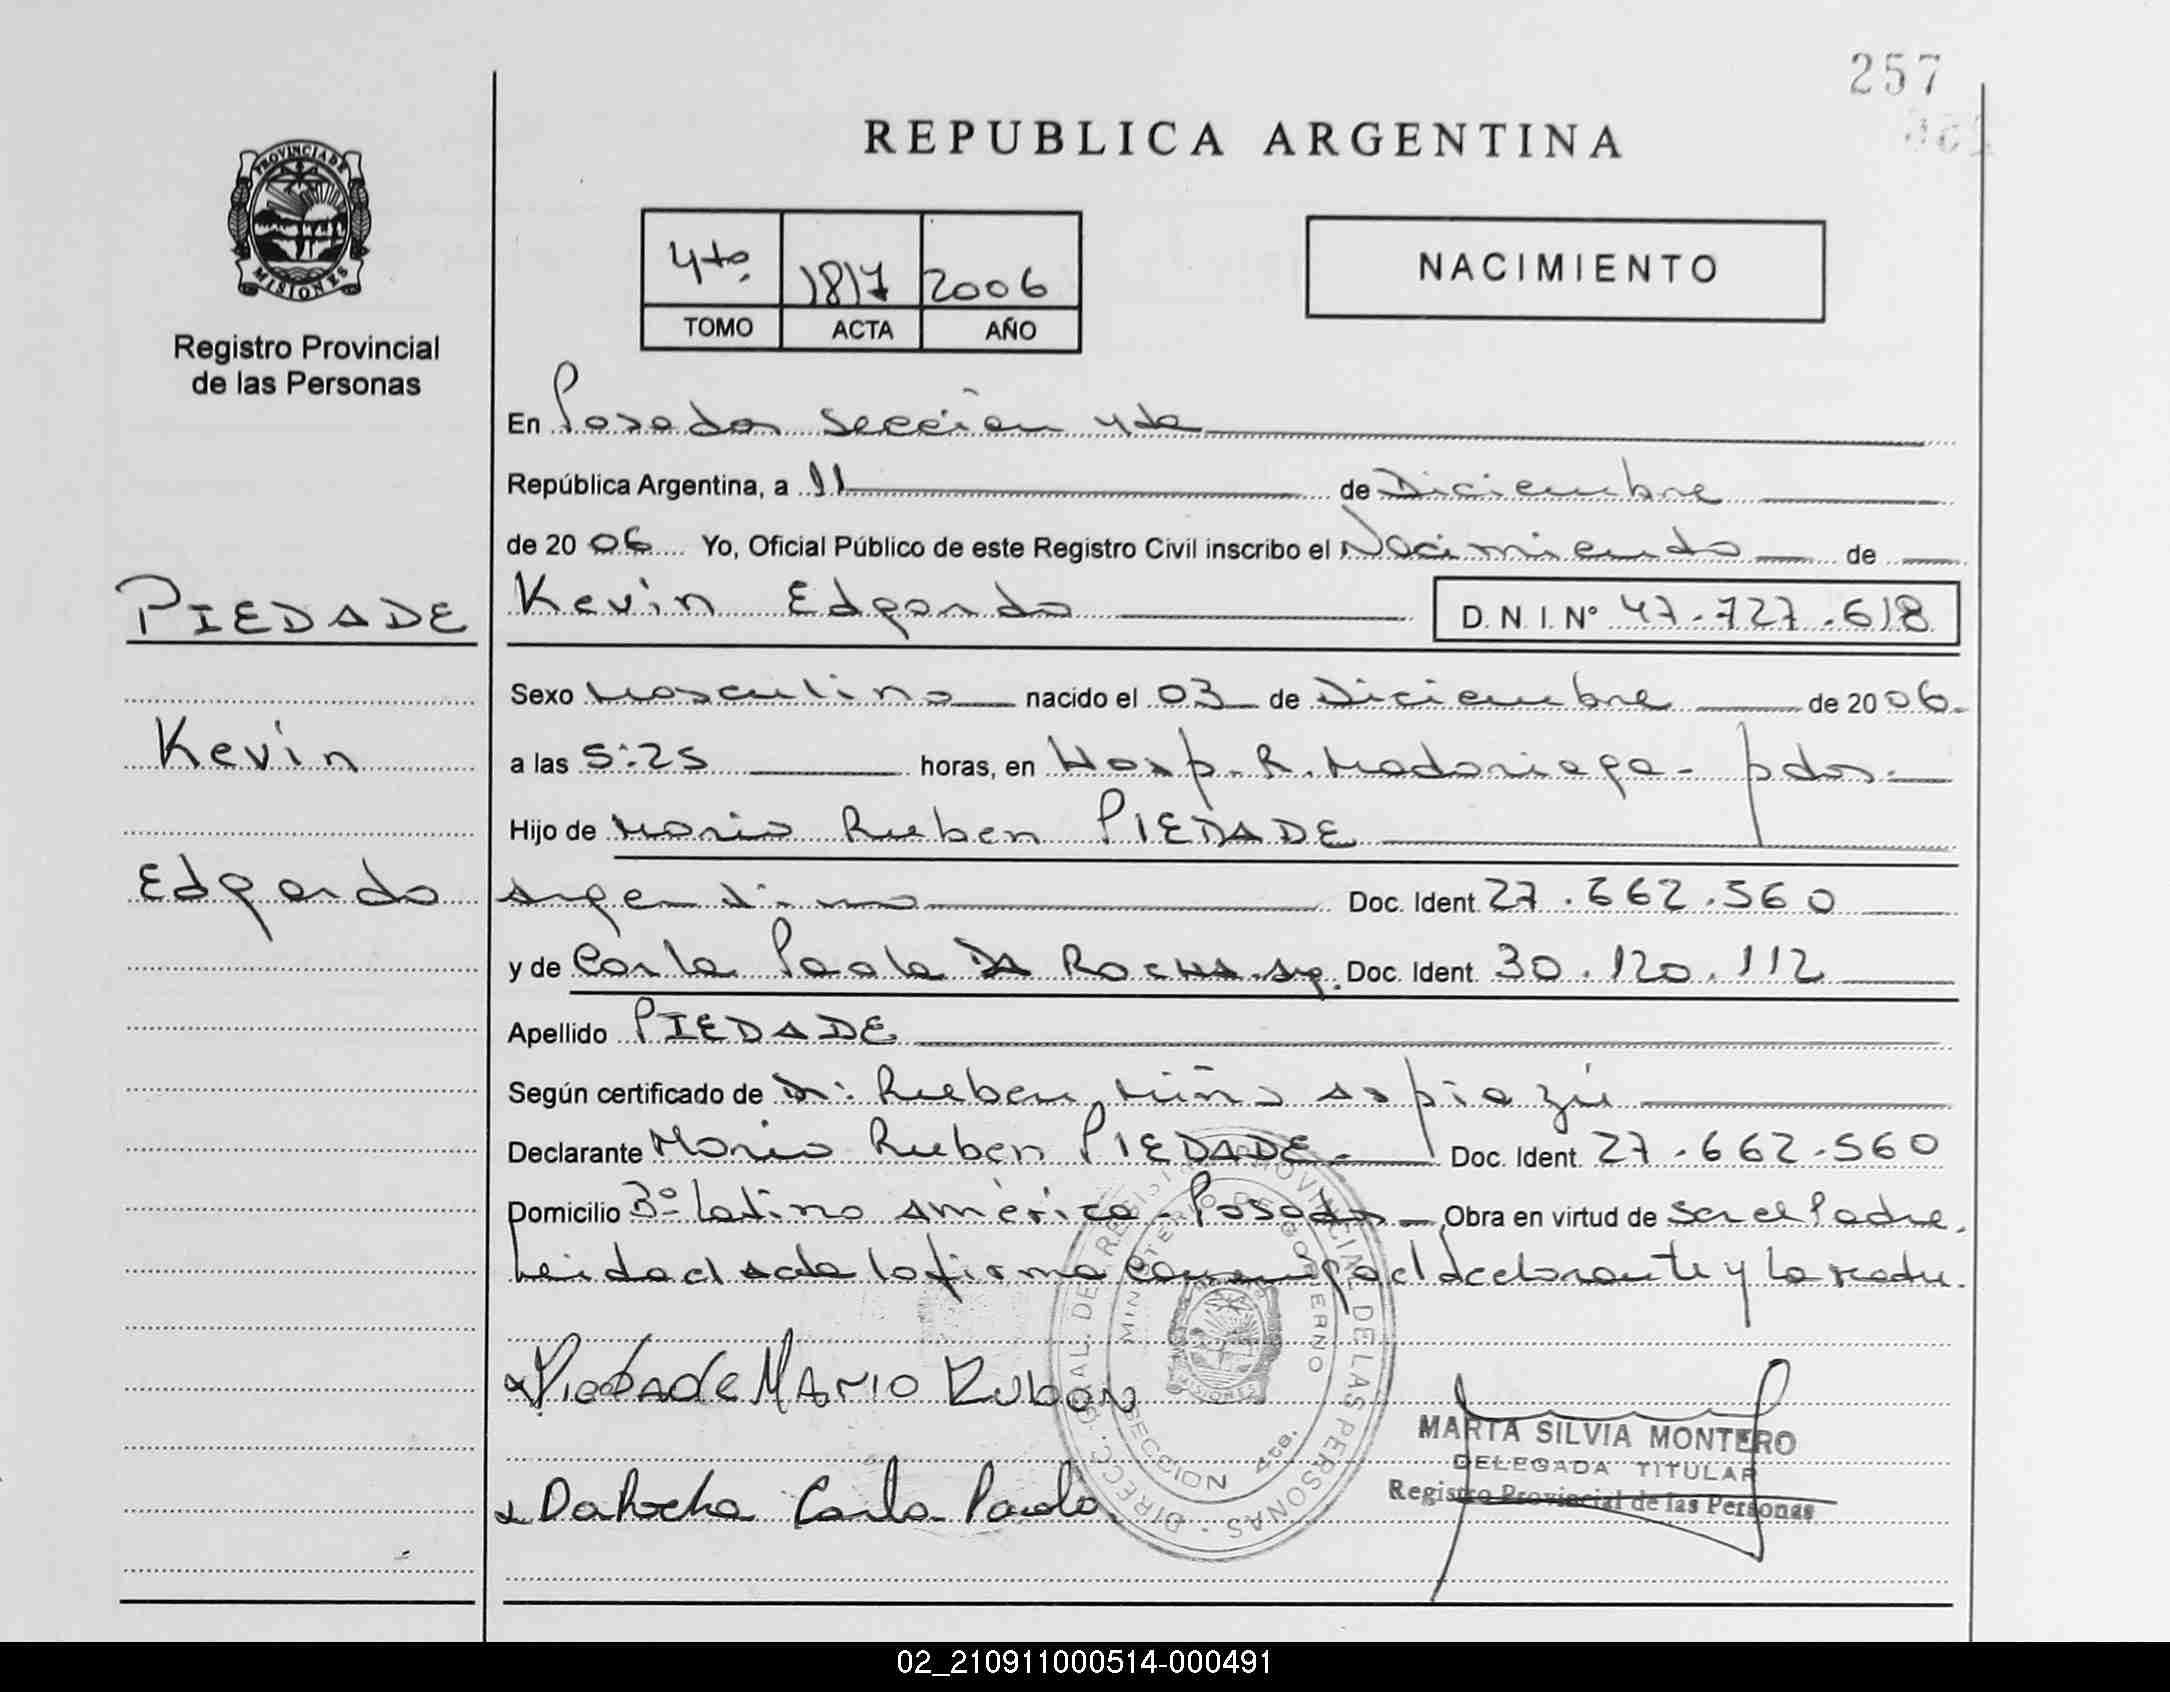 257
REPUBLICA ARGENTINA
PROVINCIA DE
MISIONES
Registro Provincial
de las Personas
4to 1817 2006
TOMO ACTA AÑO
NACIMIENTO
En Posadas Sección 4ta
República Argentina, a 11 de Diciembre
de 20 06 Yo, Oficial Público de este Registro Civil inscribo el Nacimiento de
PIEDADE
Kevin Edgardo D. N. I. N° 47.727.618
Sexo Masculino nacido el 03 de Diciembre de 20 06
Kevin
a las 5:25 horas, en Hosp. R. Madariaga - pdas.
Hijo de Mario Ruben PIEDADE
Edgardo
Argentino Doc. Ident. 27.662.560
y de Carla Paola DA ROCHA Arg. Doc. Ident. 30.120.112
Apellido PIEDADE
Según certificado de Dr: Ruben Miño Aspiazú
Declarante Mario Ruben PIEDADE.- Doc. Ident. 27.662.560
Domicilio B° Latino América - Posadas Obra en virtud de Ser el Padre.
Leida el acta la firma conmigo el declarante y la madre.
Piedade MARIO Ruben
DaRocha Carla Paola
DIRECC. GRAL. DE REGISTRO PROVINCIAL DE LAS PERSONAS
MINISTERIO DE GOBIERNO
MISIONES
SECCION 4ta.
MARTA SILVIA MONTERO
DELEGADA TITULAR
Registro Provincial de las Personas
02_210911000514-000491